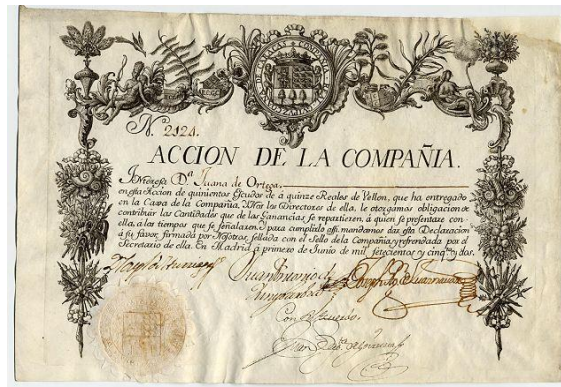 N. 2121.
ACCION DE LA COMPAÑIA.
Interesa Dª Juana de Ortega.
en esta Accion de quinientos Escudos de à quinze Reales de Vellon, que ha entregado
en la Caxa de la Compañia, y Nos los Directores de ella, le otorgamos obligacion de
contribuir las Cantidades que de las Ganancias se repartieren, à quien se presentare con
ella, à los tiempos que se señalaren. Y para cumplirlo assi, mandamos dar esta Declaracion
à su favor, firmada por Nosotros, sellada con el Sello de la Compañia, y refrendada por el
Secretario de ella. En Madrid à primero de Junio de mil setecientos y cinq.ta y dos.
Juan Antonio de
Con Acuerdo.
Juan